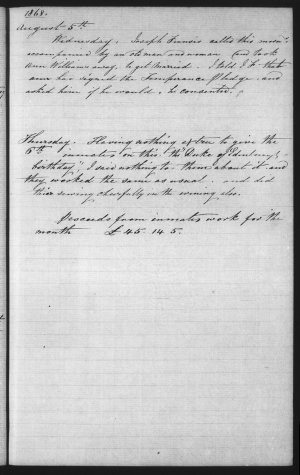 1868.
August 5th
Wednesday. Joseph Francis called this morng
accompanied by an old man and woman and took
Ann Williams away, to get married. I told J. F. that
ann had signed the Temperance Pledge. and
asked him if he would. he consented.
Thursday. Having nothing extra to give the
6th inmates on this "the Duke of Edinburg's
birthday" I said nothing to them about it and
they worked the same as usual. and did
their sewing cheerfully in the evening also.
Proceeds from inmates work for the
month £45.14.5.